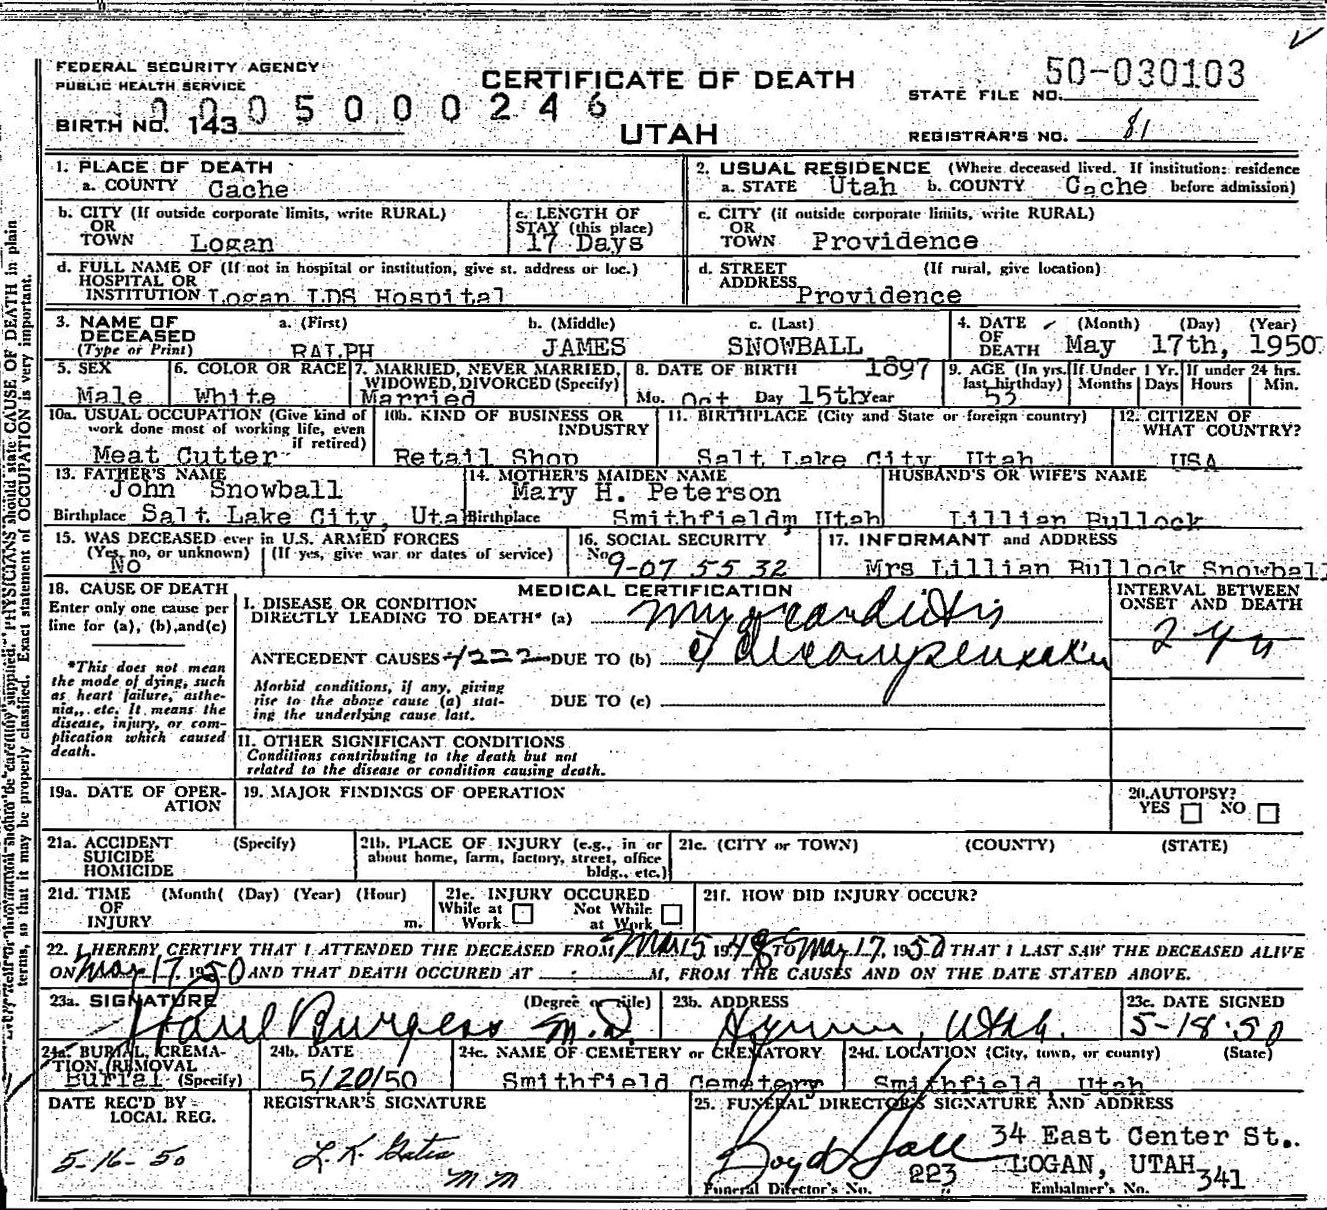 FEDERAL SECURITY AGENCY
PUBLIC HEALTH SERVICE
CERTIFICATE OF DEATH
STATE FILE NO. 50-030103
0005000246
BIRTH NO. 143
UTAH
REGISTRAR'S NO. 81
1. PLACE OF DEATH
a. COUNTY Cache
2. USUAL RESIDENCE (Where deceased lived. If institution: residence
a. STATE Utah b. COUNTY Cache before admission)
b. CITY (If outside corporate limits, write RURAL)
OR
TOWN Logan
c. LENGTH OF
STAY (this place)
17 Days
c. CITY (if outside corporate limits, write RURAL)
OR
TOWN Providence
d. FULL NAME OF (If not in hospital or institution, give st. address or loc.)
HOSPITAL OR
INSTITUTION Logan LDS Hospital
d. STREET (If rural, give location)
ADDRESS Providence
3. NAME OF
DECEASED
(Type or Print)
a. (First) b. (Middle) c. (Last)
RALPH JAMES SNOWBALL
4. DATE (Month) (Day) (Year)
OF
DEATH May 17th, 1950
5. SEX
Male
6. COLOR OR RACE
White
7. MARRIED, NEVER MARRIED,
WIDOWED, DIVORCED (Specify)
Married
8. DATE OF BIRTH 1897
Mo. Oct Day 15th Year
9. AGE (In yrs. last birthday)
53
If Under 1 Yr.
Months Days
If under 24 hrs.
Hours Min.
10a. USUAL OCCUPATION (Give kind of
work done most of working life, even
if retired)
Meat Cutter
10b. KIND OF BUSINESS OR
INDUSTRY
Retail Shop
11. BIRTHPLACE (City and State or foreign country)
Salt Lake City, Utah
12. CITIZEN OF
WHAT COUNTRY?
USA
13. FATHER'S NAME
John Snowball
Birthplace Salt Lake City, Utah
14. MOTHER'S MAIDEN NAME
Mary H. Peterson
Birthplace Smithfieldm Utah
HUSBAND'S OR WIFE'S NAME
Lillian Bullock
15. WAS DECEASED ever in U.S. ARMED FORCES
(Yes, no, or unknown) (If yes, give war or dates of service)
No
16. SOCIAL SECURITY
No. 9-07 55 32
17. INFORMANT and ADDRESS
Mrs Lillian Bullock Snowball
18. CAUSE OF DEATH
Enter only one cause per
line for (a), (b), and (c)
*This does not mean
the mode of dying, such
as heart failure, asthe-
nia, etc. It means the
disease, injury, or com-
plication which caused
death.
MEDICAL CERTIFICATION
I. DISEASE OR CONDITION
DIRECTLY LEADING TO DEATH* (a) Myocarditis
ANTECEDENT CAUSES 4222 DUE TO (b) c̄ decompensation
Morbid conditions, if any, giving
rise to the above cause (a) stat-
ing the underlying cause last.
DUE TO (c)
INTERVAL BETWEEN
ONSET AND DEATH
2 yrs
II. OTHER SIGNIFICANT CONDITIONS
Conditions contributing to the death but not
related to the disease or condition causing death.
19a. DATE OF OPER-
ATION
19. MAJOR FINDINGS OF OPERATION
20. AUTOPSY?
YES NO
21a. ACCIDENT (Specify)
SUICIDE
HOMICIDE
21b. PLACE OF INJURY (e.g., in or
about home, farm, factory, street, office
bldg., etc.)
21c. (CITY or TOWN) (COUNTY) (STATE)
21d. TIME (Month( (Day) (Year) (Hour)
OF
INJURY m.
21e. INJURY OCCURED
While at Work Not While at Work
21f. HOW DID INJURY OCCUR?
22. I HEREBY CERTIFY THAT I ATTENDED THE DECEASED FROM Mar 5 1948 TO May 17, 1950 THAT I LAST SAW THE DECEASED ALIVE
ON May 17 1950 AND THAT DEATH OCCURED AT M, FROM THE CAUSES AND ON THE DATE STATED ABOVE.
23a. SIGNATURE (Degree or title)
Paul Burgess M.D.
23b. ADDRESS
Hyrum, Utah.
23c. DATE SIGNED
5-18-50
24a. BURIAL, CREMA-
TION, REMOVAL
Burial (Specify)
24b. DATE
5/20/50
24c. NAME OF CEMETERY or CREMATORY
Smithfield Cemetery
24d. LOCATION (City, town, or county) (State)
Smithfield, Utah
DATE REC'D BY
LOCAL REG.
5-16-50
REGISTRAR'S SIGNATURE
L. K. Gates
M M
25. FUNERAL DIRECTOR'S SIGNATURE AND ADDRESS
Boyd Hall
34 East Center St..
LOGAN, UTAH
Funeral Director's No. 223
Embalmer's No. 341
PHYSICIANS should state CAUSE OF DEATH in plain
terms, so that it may be properly classified. Exact statement of OCCUPATION is very important.